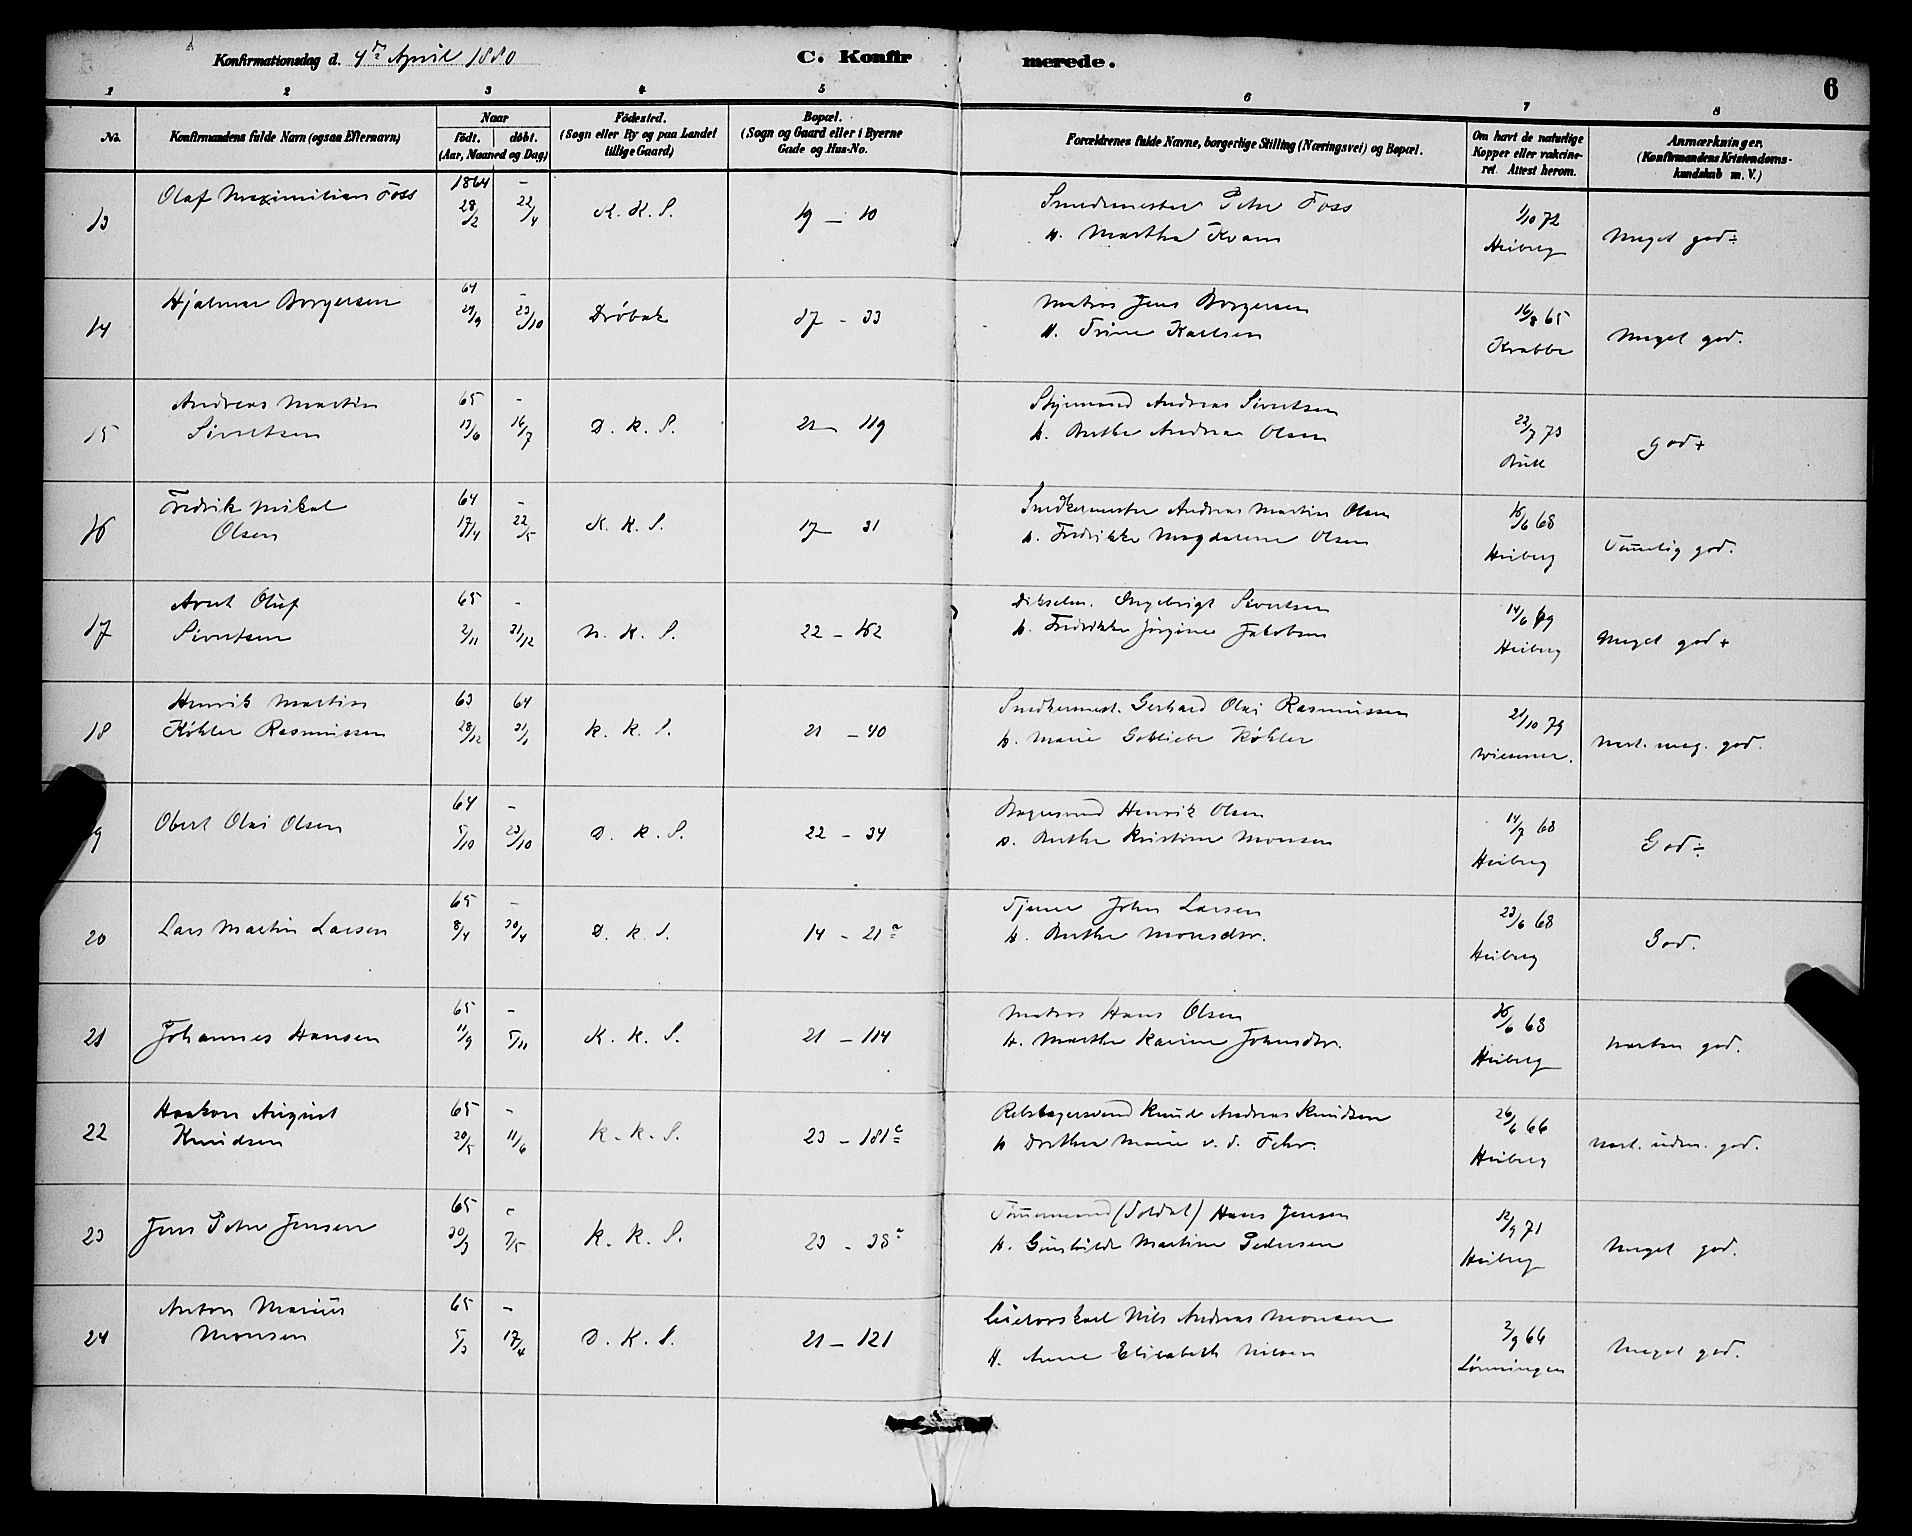 Konfirmationsdag d. 4de April 1880
C. Konfirmerede.
6
1 2 3 4 5 6 7 8
No.
Konfirmandens fulde Navn (ogsaa Efternavn)
Naar
födt. döbt.
(Aar, Maaned og Dag)
Födested.
(Sogn eller By og paa Landet
tillige Gaard)
Bopæl.
(Sogn og Gaard eller i Byerne
Gade og Hus-No.
Forældrenes fulde Navne, borgerlige Stilling (Næringsvei) og Bopæl.
Om havt de naturlige
Kopper eller vakcine-
ret. Attest herom.
Anmærkninger.
(Konfirmandens Kristendoms-
kundskab m. V.)
13 Olaf Maximilian Foss 1864 28/2 - 22/4 K. K. S. 19 - 10
Smedmester Peter Foss
h. Martha Kvam
1/10 72 Heiberg Meget god ÷
14 Hjalmar Borgersen 64 24/9 - 23/10 Drøbak 17 - 33
Matros Jens Borgersen
h. Trine Karlsen
16/8 65 Krabbe Meget god.
15 Andreas Martin
Sivertsen 65 17/6 - 16/7 D. K. S. 21 - 119
Styrmand Andreas Sivertsen
h. Berthe Andrea Olsen
22/7 73 Bull God +
16 Fredrik Mikal
Olsen 64 17/4 - 22/5 K. K. S. 17 - 31
Snedkermester Andreas Martin Olsen
h. Fredrikke Magdalene Olsen
16/6 68 Heiberg Temmelig god.
17 Arnt Oluf
Sivertsen 65 2/11 - 31/12 N. K. S. 22 - 162
Ingebrigt Sivertsen
h. Fredrikke Jørgine Jakobsen
14/6 69 Heiberg Meget god +
18 Henrik Martin
Köhler Rasmussen 63 28/12 64 31/1 K. K. S. 21 - 40
Snedkermest. Gerhard Olai Rasmussen
h. Marie Gotliebe Köhler
21/10 79 Wiesener. Næst. meg. god.
9 Obert Olai Olsen 64 5/10 - 23/10 D. K. S. 22 - 34
Bagersvend Henrik Olsen
h. Berthe Kristine Monsen
14/7 68 Heiberg God ÷
20 Lars Martin Larsen 65 8/4 - 30/4 D. K. S. 14 - 21a
Tjener John Larsen
h. Berthe Monsdtr.
23/6 68 Heiberg God.
21 Johannes Hansen 65 11/9 - 5/11 K. K. S. 21 - 114
Matros Hans Olsen
h. Marthe Karine Johnsdtr.
16/6 68 Heiberg næsten god.
22 Haakon August
Knudsen 65 20/5 - 11/6 K. K. S. 23 - 181c
Rebslagersvend Knud Andreas Knudsen
h. Dorthea Marie v. d. Fehr.
26/6 66 Heiberg Næst. udm. god.
23 Jens Peter Jensen 65 30/3 - 7/5 K. K. S. 23 - 38a
Tömmermand (Soldat) Hans Jensen
h. Gunhilde Martine Pedersen
12/9 71 Heiberg Meget god.
24 Anton Marius
Monsen 65 5/3 - 17/4 D. K. S. 21 - 121
Nils Andreas Monsen
h. Anne Elisabeth Nilsen
2/9 66 Lönningen Meget god.